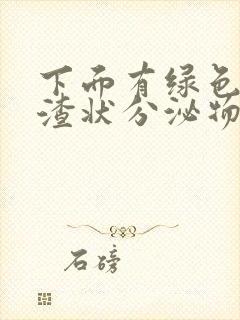 下而有绿色
渣状分泌物
石磅